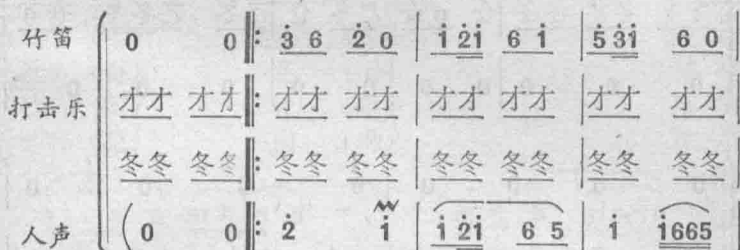 竹笛 0 0 ‖: 3̇ 6 2̇ 0 | 1̇ 2̇1̇ 6 1̇ | 5̇ 3̇1̇ 6 0 |
打击乐 才才 才才 ‖: 才才 才才 | 才才 才才 | 才才 才才 |
冬冬 冬冬 ‖: 冬冬 冬冬 | 冬冬 冬冬 | 冬冬 冬冬 |
人声 (0 0 ‖: 2̇ 1̇ | 1̇ 2̇1̇ 6 5 | 1̇ 1̇665 |